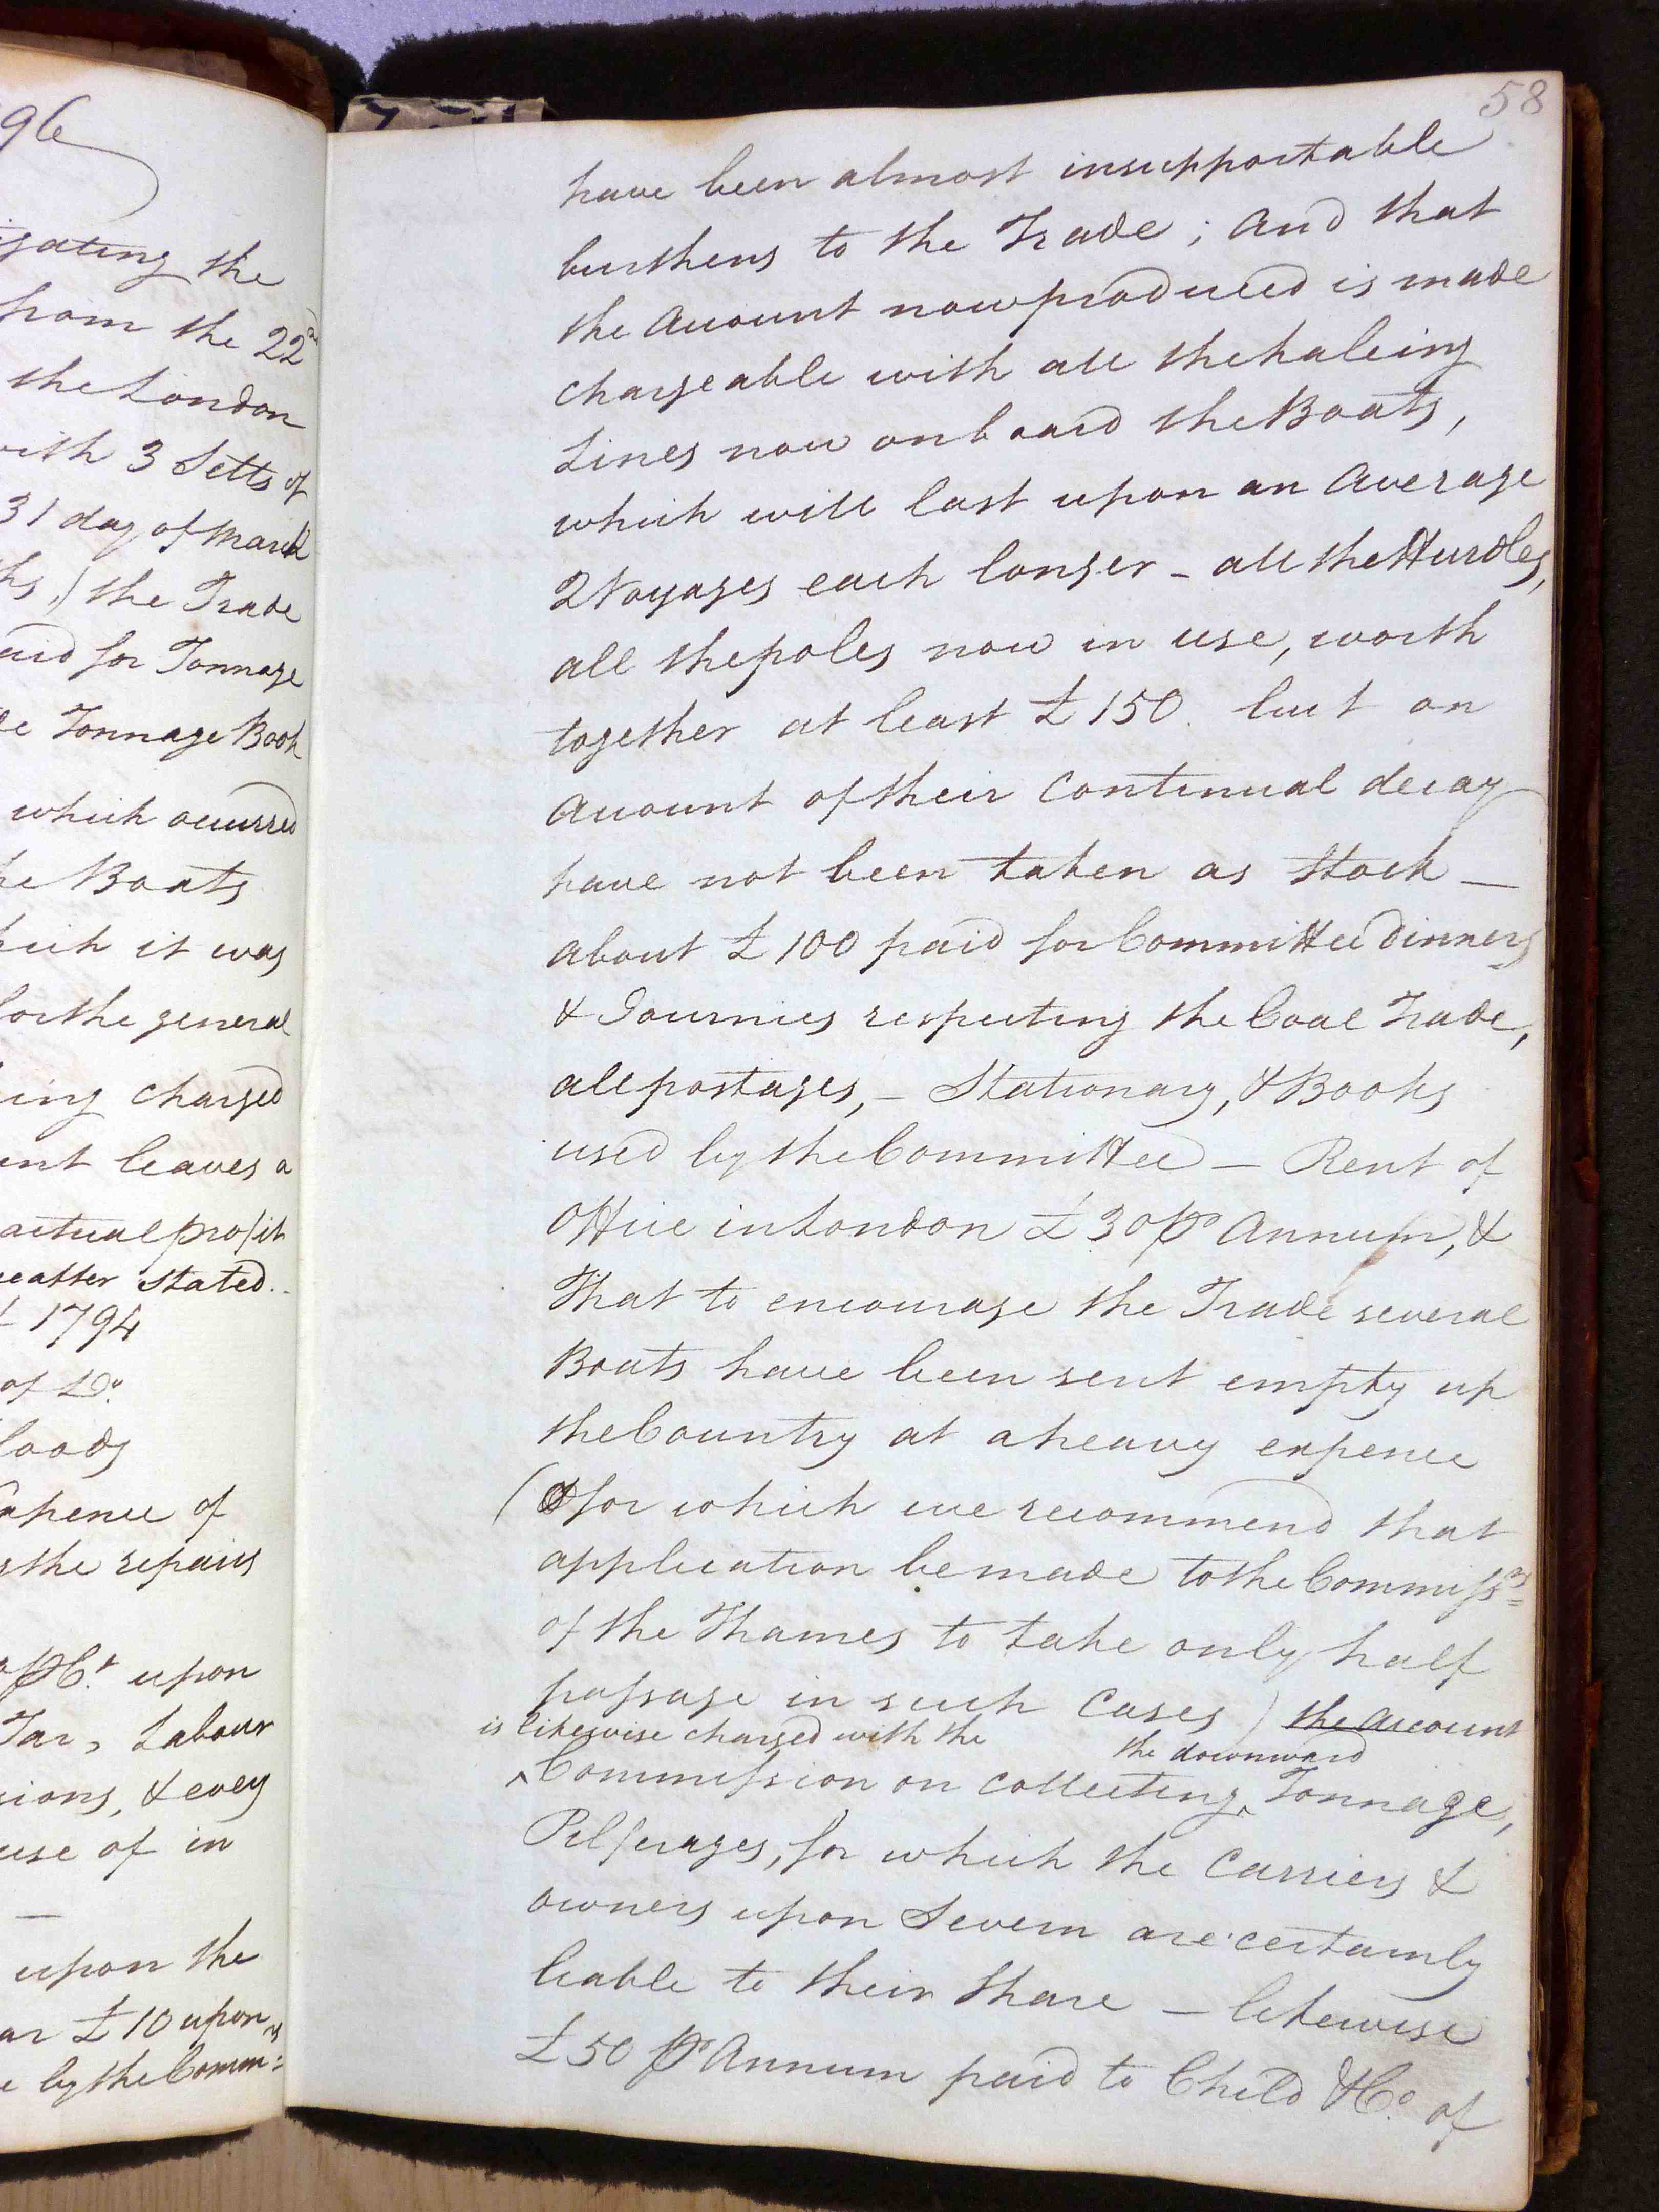 96
gating the
from the 22d
the London
with 3 Setts of
31 day of March
the Trade
for Tonnage
Tonnage Book
which occurred
Boats
it was
for the general
charged
leaves a
actual profit
stated.
1794
of Do.
Goods
Expence of
the repairs
upon
Tar, Labour
& every
use of in
upon the
£10 upon
by the Comm:rs
58
have been almost insupportable
burthens to the Trade; and that
the Account now produced is made
chargeable with all the haleing
Lines now on board the Boats,
which will last upon an Average
2 Voyages each longer - all the Hurdles,
all the poles now in use, worth
together at least £150. but on
Account of their Continual decay
have not been taken as Stock —
about £100 paid for Committee Dinners
& Journies respecting the Coal Trade,
all postages, - Stationary, & Books
used by the Committee — Rent of
Office in London £30 pr Annum, &
That to encourage the Trade several
Boats have been sent empty up
the Country at a heavy expence
(for which we recommend that
application be made to the Commissrs
of the Thames to take only half
passage in such Cases) the Account
is likewise charged with the
the downward
^Commission on Collecting^ Tonnage,
Pilferages, for which the Carriers &
owners upon Severn are certainly
liable to their Share — likewise
£50 pr Annum paid to Child & Co. of